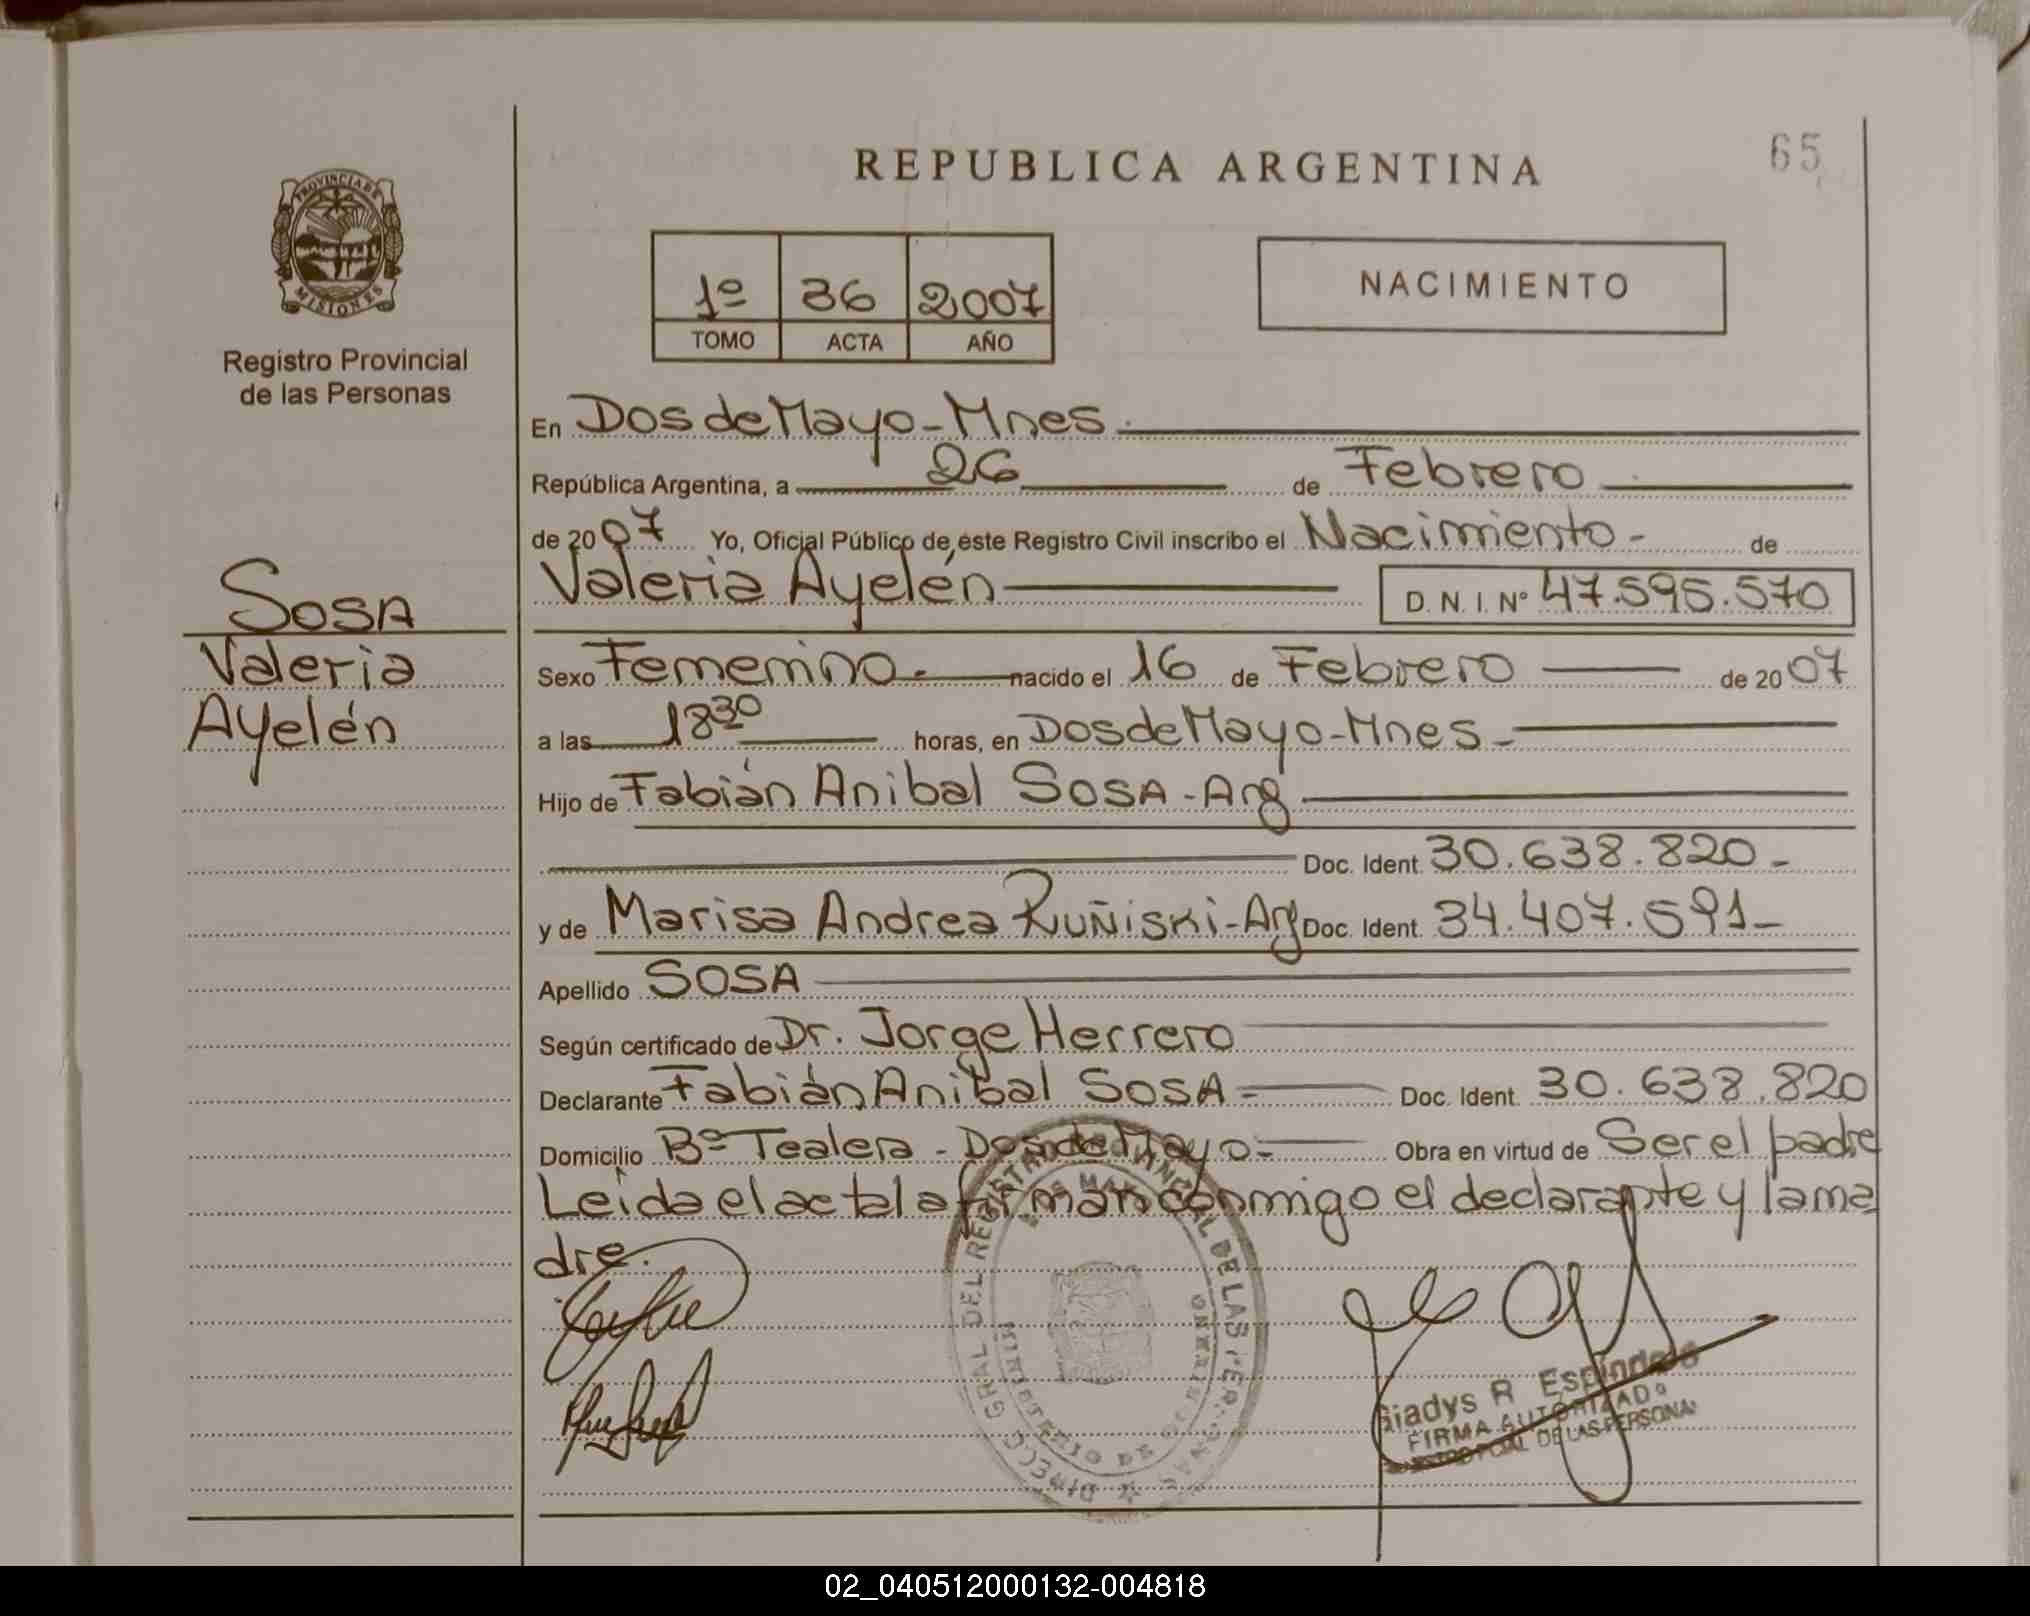 REPUBLICA ARGENTINA
65
PROVINCIA DE
MISIONES
Registro Provincial
de las Personas
1º 36 2007
TOMO ACTA AÑO
NACIMIENTO
En Dos de Mayo - Mnes.
República Argentina, a 26 de Febrero
de 2007 Yo, Oficial Público de éste Registro Civil inscribo el Nacimiento - de
Valeria Ayelén D. N. I. Nº 47.595.570
SOSA
Valeria
Ayelén
Sexo Femenino.- nacido el 16 de Febrero de 2007
a las 18 30 horas, en Dos de Mayo - Mnes -
Hijo de Fabián Anibal SOSA - Arg
Doc. Ident. 30.638.820 -
y de Marisa Andrea RUÑISKI - Arg Doc. Ident. 34.407.591 -
Apellido SOSA
Según certificado de Dr. Jorge Herrero
Declarante Fabián Anibal SOSA - Doc. Ident. 30.638.820
Domicilio Bº Tealera - Dos de Mayo - Obra en virtud de Ser el padre
Leida el acta la firman conmigo el declarante y la ma
dre.
Gladys R Espíndola
FIRMA AUTORIZADA
DE LAS PERSONAS
02_040512000132-004818